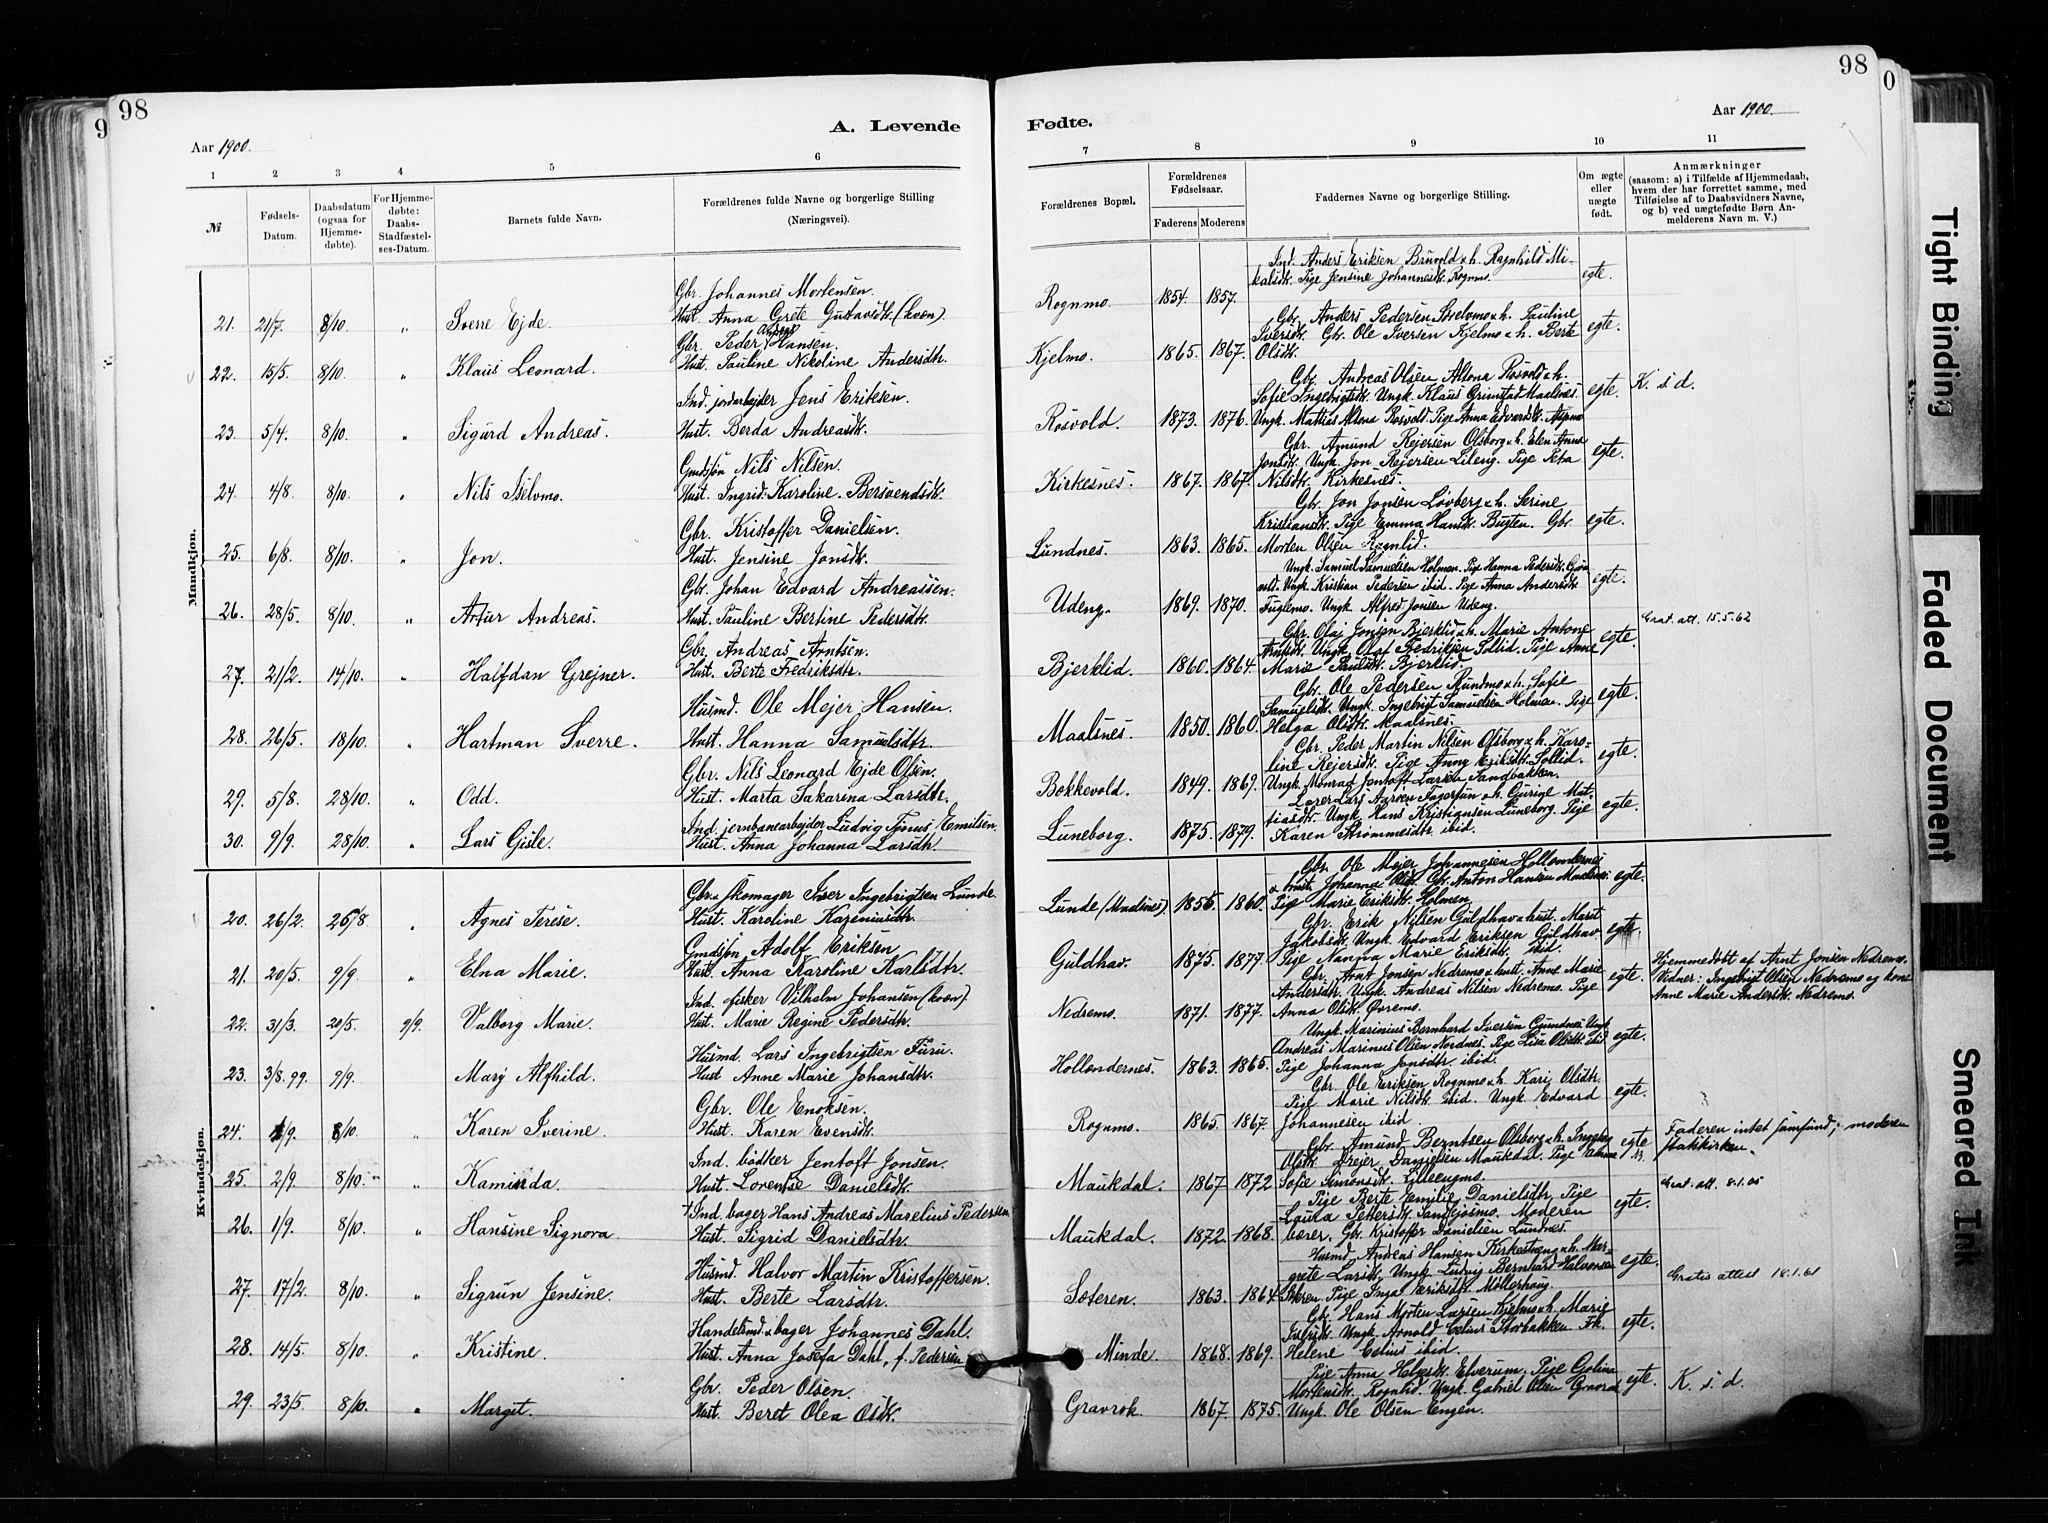 98
A. Levende
Aar 1900.
1 2 3 4 5 6
№
Fødsels-Datum.
Daabsdatum (ogsaa for Hjemme-døbte).
For Hjemme-døbte: Daabs-Stadfæstel-ses-Datum.
Barnets fulde Navn.
Forældrenes fulde Navne og borgerlige Stilling (Næringsvei).
Mandkjøn.
Gbr. Johannes Mortensen.
21. 21/7. 8/10. „ Sverre Ejde. Hust. Anna Grete Gustavsdtr. (kvæn)
Gbr. Peder Hansen.
22. 15/5. 8/10. „ Klaus Leonard. Hust. Pauline Nikoline Andersdtr.
Ind. jordarbejder Jens Eriksen.
23. 5/4. 8/10. „ Sigurd Andreas. Hust. Berda Andreasdtr.
Gmdsjøn Nils Nilsen.
24. 4/8. 8/10. „ Nils Selvmo. Hust. Ingrid Karoline Bersvendsdtr.
Gbr. Kristoffer Danielsen.
25. 6/8. 8/10. „ Jon. Hust. Jensine Jonsdtr.
Gbr. Johan Edvard Andreassen.
26. 28/5. 8/10. „ Artur Andreas. Hust. Pauline Bertine Pedersdtr.
Gbr. Andreas Arntsen.
27. 21/2. 14/10. „ Halfdan Grejner. Hust. Berte Fredriksdtr.
Husmd. Ole Mejer Hansen.
28. 26/5. 18/10. „ Hartman Sverre. Hust. Hanna Samuelsdtr.
Gbr. Nils Leonard Ejde Olsen.
29. 5/8. 28/10. „ Odd. Hust. Marta Sakarina Larsdtr.
Ind. jernbanearbejder Ludvig Tjønus Emilsen.
30. 9/9. 28/10. „ Lars Gisle. Hust. Anna Johanna Larsdtr.
Kvindekjøn.
Gbr. skomager Iver Ingebrigtsen Lunde.
20. 26/2. 26/8. „ Agnes Terese. Hust. Karoline Kazeniusdtr.
Gmdsjøn Adolf Eriksen
21. 20/5. 9/9. „ Elna Marie. Hust. Anna Karoline Karlsdtr.
Ind. fisker Vilhelm Johansen (kvæn).
22. 31/3. 20/5. 9/9. Valborg Marie. Hust. Marie Regine Pedersdtr.
Husmd. Lars Ingebrigtsen Furu.
23. 3/8.99. 9/9. Mary Alfhild. Hust Anne Marie Johansdtr.
Gbr. Ole Enoksen.
24. 1/9. 8/10. „ Karen Iverine. Hust. Karen Evensdtr.
Ind. bødker Jentoft Jonsen.
25. 2/9. 8/10. „ Kaminda. Hust. Lorense Danielsdtr.
Ind. bager Hans Andreas Marelius Pedersen
26. 1/9. 8/10. „ Hansine Signora. Hust. Sigrid Danielsdtr.
Husmd. Halvor Martin Kristoffersen.
27. 17/2. 8/10. „ Sigrun Jensine. Hust. Berte Larsdtr.
Handelsmd. & bager Johannes Dahl.
28. 14/5. 8/10. „ Kristine. Hust. Anna Josefa Dahl, f. Pedersen
Gbr. Peder Olsen.
29. 23/5. 8/10. „ Margit. Hust. Beret Olea Olsdtr.
98
Fødte.
Aar 1900.
7 8 9 10 11
Forældrenes Bopæl.
Forældrenes Fødselsaar.
Faderens Moderens
Faddernes Navne og borgerlige Stilling.
Om ægte eller uægte født.
Anmærkninger
(saasom: a) i Tilfælde af Hjemmedaab, hvem der har forrettet samme, med Tilføielse af to Daabsvidners Navne, og b) ved uægtefødte Børn An-melderens Navn m. V.)
Ind. Anders Eriksen Bruvold & h. Ragnhild Mi-
kalsdtr. Pige Jensine Johannesdtr. Rognmo. egte.
Rognmo. 1854. 1857.
Gbr. Anders Pedersen Strelvmo & h. Pauline
Iversdtr. Gbr. Ole Iversen Kjelmo & h. Berte egte.
Kjelmo. 1865. 1867. Olsdtr.
Gbr. Andreas Olsen Altona Rosvold & h.
Sofie Ingebrigtsdtr. Ungk. Klaus Grimstad Maalsnes. egte. K. s. d.
Rosvold. 1873. 1876. Ungk. Mattias Altona Rosvold. Pige Anna Edvardsdtr.
Gbr. Amund Rejersen Olsborg & h. Elen Anna
Jonsdtr. Ungk. Jon Rejersen Lileng. Pige Petra egte.
Kirkesnes. 1867. 1867. Nilsdtr. Kirkesnes.
Gbr. Jon Jonsen Løvberg & h. Serine
Kristiansdtr. Pige Emma Hansdtr. Bugten. Gbr. egte.
Lundnes. 1863. 1865. Morten Olsen Rognlid.
Ungk. Samuel Samuelsen Holmen. Pige Hanna Pedersdtr.
Ungk. Kristian Pedersen ibid. Pige Anna Andersdtr. egte.
Udeng. 1869. 1870. Fuglemo. Ungk. Alfred Jonsen Udeng.
Grat. att. 15.5.62
Gbr. Olaj Jonsen Bjerklid & h. Marie Antone
Ungk. Olaf Fredriksen Sollid. Pige Anne egte.
Bjerklid. 1860. 1864. Marie Paulsdtr. Bjerklid.
Gbr. Ole Pedersen Rundmo & h. Sofie
Samuelsdtr. Ungk. Ingebrigt Samuelsen Holmen. Pige egte.
Maalsnes. 1850. 1860. Helga Olsdtr. Maalsnes.
Gbr. Peder Martin Nilsen Olsborg & h. Karo-
line Rejersdtr. Pige Anny Eriksdtr. Sollid. egte.
Bokkevold. 1849. 1869. Ungk. Monrad Jentoft Larsen Sandbakken.
Lærer Lars Larsen Fagerlun & h. Gurine Mat-
tiasdtr. Ungk. Hans Kristiansen Luneborg. Pige egte.
Luneborg. 1875. 1879. Karen Strømmesdtr. ibid.
Gbr. Ole Mejer Johannesen Hollendernes
& hust. Johanna Olsdtr. Gbr. Anton Hansen Maalsnes. egte.
Lunde (Maalsnes). 1856. 1860. Pige Marie Eriksdtr. Holmen.
Gbr. Erik Nilsen Guldhav & hust. Marit
Jakobsdtr. Ungk. Edvard Eriksen Guldhav. egte.
Guldhav. 1875. 1877. Pige Nanna Marie Eriksdtr. ibid.
Gbr. Arnt Jonsen Nedremo & hust. Anne Marie
Andersdtr. Ungk. Andreas Nilsen Nedremo. Pige egte.
Nedremo. 1871. 1877. Anna Olsdtr. Øvremo.
Hjemmedøbt af Arnt Jonsen Nedremo.
Vidner: Ingebrigt Olsen Nedremo og kone
Anne Marie Andersdtr. Nedremo.
Ungk. Marinius Bernhard Iversen Grundnes. Ungk.
Andreas Marinus Olsen Nordnes. Pige Lisa Olsdtr. ibid. egte.
Hollendernes. 1863. 1865. Pige Johanna Jonsdtr. ibid.
Gbr. Ole Eriksen Rognmo & h. Kari Olsdtr.
Pige Marie Nilsdtr. ibid. Ungk Edvard egte.
Rognmo. 1865. 1867. Johannesen ibid.
Gbr. Amund Berntsen Olsborg & h. Ingeborg
Olsdtr. Drejer Danielsen Maukdal. Pige egte
Maukdal. 1867 1872 Sofie Simonsdtr. Lilleengmo.
Faderen intet samfund; moderen statskirken.
Grat. att. 8.1.05
Pige Berte Emilie Danielsdtr. Pige
Laura Pettersdtr. Sandjosmo. Moderen egte.
Maukdal. 1872. 1868. bærer. Gbr. Kristoffer Danielsen Lundnes.
Husmd. Andreas Hansen Kirkestræng & h. Mar-
grete Larsdtr. Ungk. Ludvig Bernhard Halvorsen egte.
Sæteren. 1863. 1864. Sæteren. Pige Inga Eriksdtr. Møllerhaug.
Gratis attest 18.1.61
Gbr. Hans Morten Larsen Kjelmo & h. Marie
Iversdtr. Ungk. Arnold Celius Storbakken. Frk. egte.
Minde. 1868. 1869. Helene Celius ibid.
Pige Anna Helgesdtr. Elverum. Pige Golina
Mortensdtr. Rognlid. Ungk. Gabriel Olsen Gravrok egte. K. s. d.
Gravrok. 1867. 1875. Ungk. Ole Olsen Engen.
Tight Binding
Faded Document
Smeared Ink